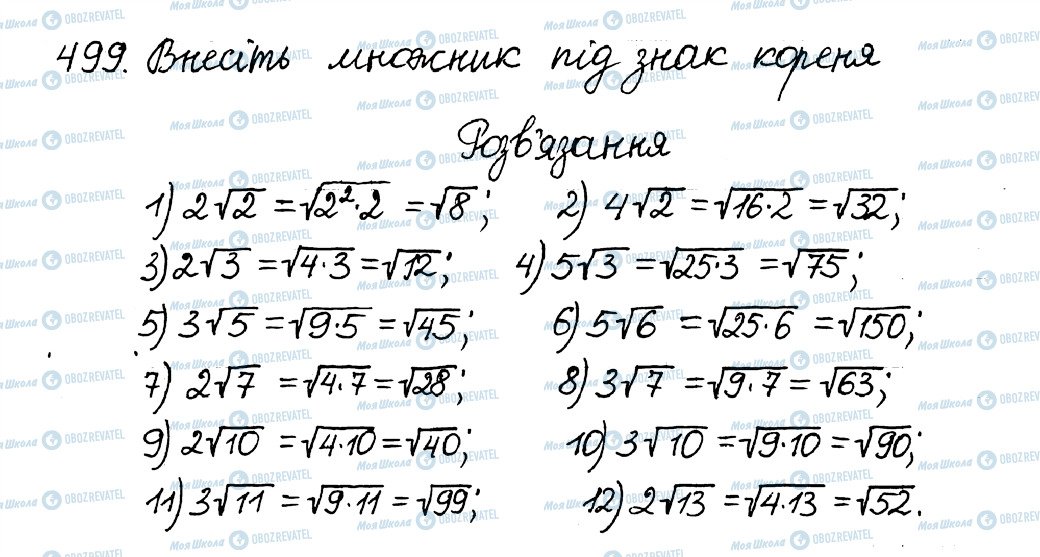 499. Внесіть множник під знак кореня
Розв'язання
1) 2√2 = √(2²·2) = √8; 2) 4√2 = √(16·2) = √32;
3) 2√3 = √(4·3) = √12; 4) 5√3 = √(25·3) = √75;
5) 3√5 = √(9·5) = √45; 6) 5√6 = √(25·6) = √150;
7) 2√7 = √(4·7) = √28; 8) 3√7 = √(9·7) = √63;
9) 2√10 = √(4·10) = √40; 10) 3√10 = √(9·10) = √90;
11) 3√11 = √(9·11) = √99; 12) 2√13 = √(4·13) = √52.